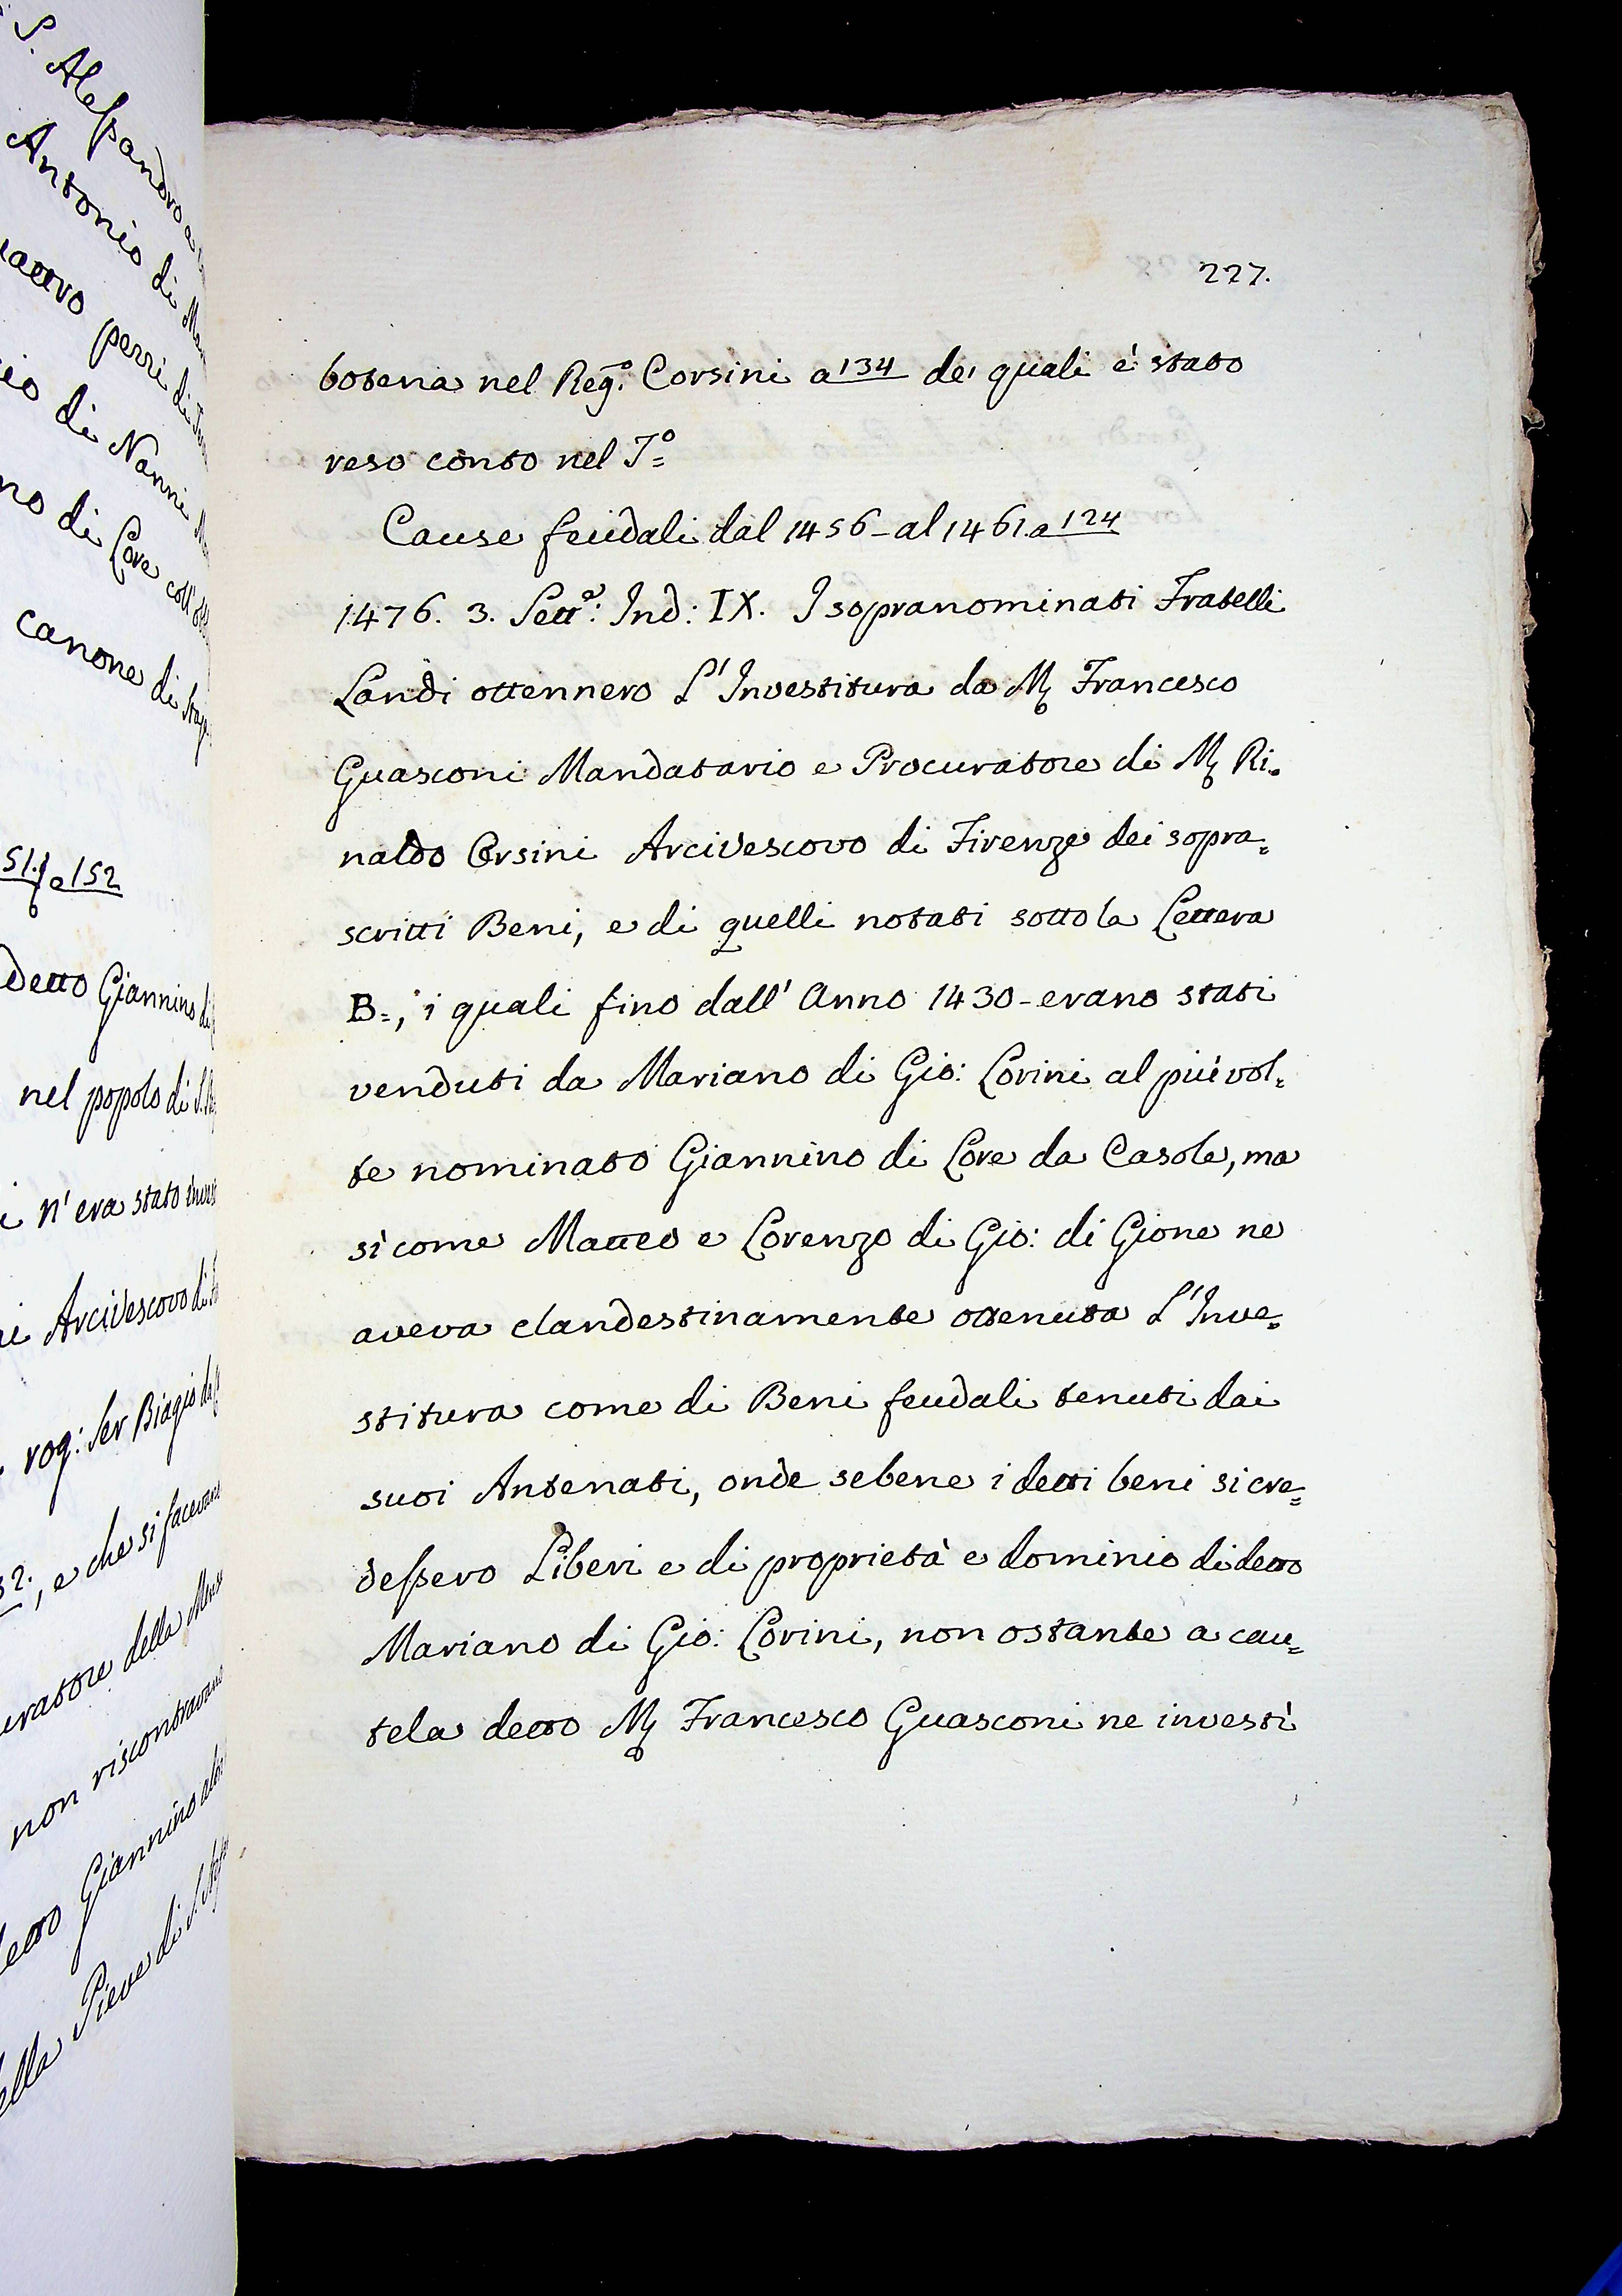 S. Alessandro a
Antonio di
pezzi di
di Nanni
di Lore coll'
canone di
51. a 152
detto Giannino di
nel popolo di S.
n'era stato
Arcivescovo di
rog: Ser Biagio da
32., e che si facevano
della
non riscontravano
Giannino
Pieve di S.
227.
botena nel Reg.º Corsini a 134 de' quali è stato
reso conto nel J.º
Cause feudali dal 1456 - al 1461. a 124
1476. 3. Sett.e: Ind: IX. I sopranominati Fratelli
Landi ottennero L'Investitura da M. Francesco
Guasconi Mandatario e Procuratore di M. Ri-
naldo Orsini Arcivescovo di Firenze dei sopra=
scritti Beni, e di quelli notati sotto la Lettera
B=, i quali fino dall' Anno 1430 - erano stati
venduti da Mariano di Gio: Lorini al più vol=
te nominato Giannino di Lore da Casole, ma
sì come Matteo e Lorenzo di Gio: di Gione ne
aveva clandestinamente ottenuta L'Inve=
stitura come di Beni feudali tenuti dai
suoi Antenati, onde sebene i detti beni si cre=
dessero Liberi e di proprietà e dominio di detto
Mariano di Gio: Lorini, non ostante a cau=
tela detto M. Francesco Guasconi ne investì